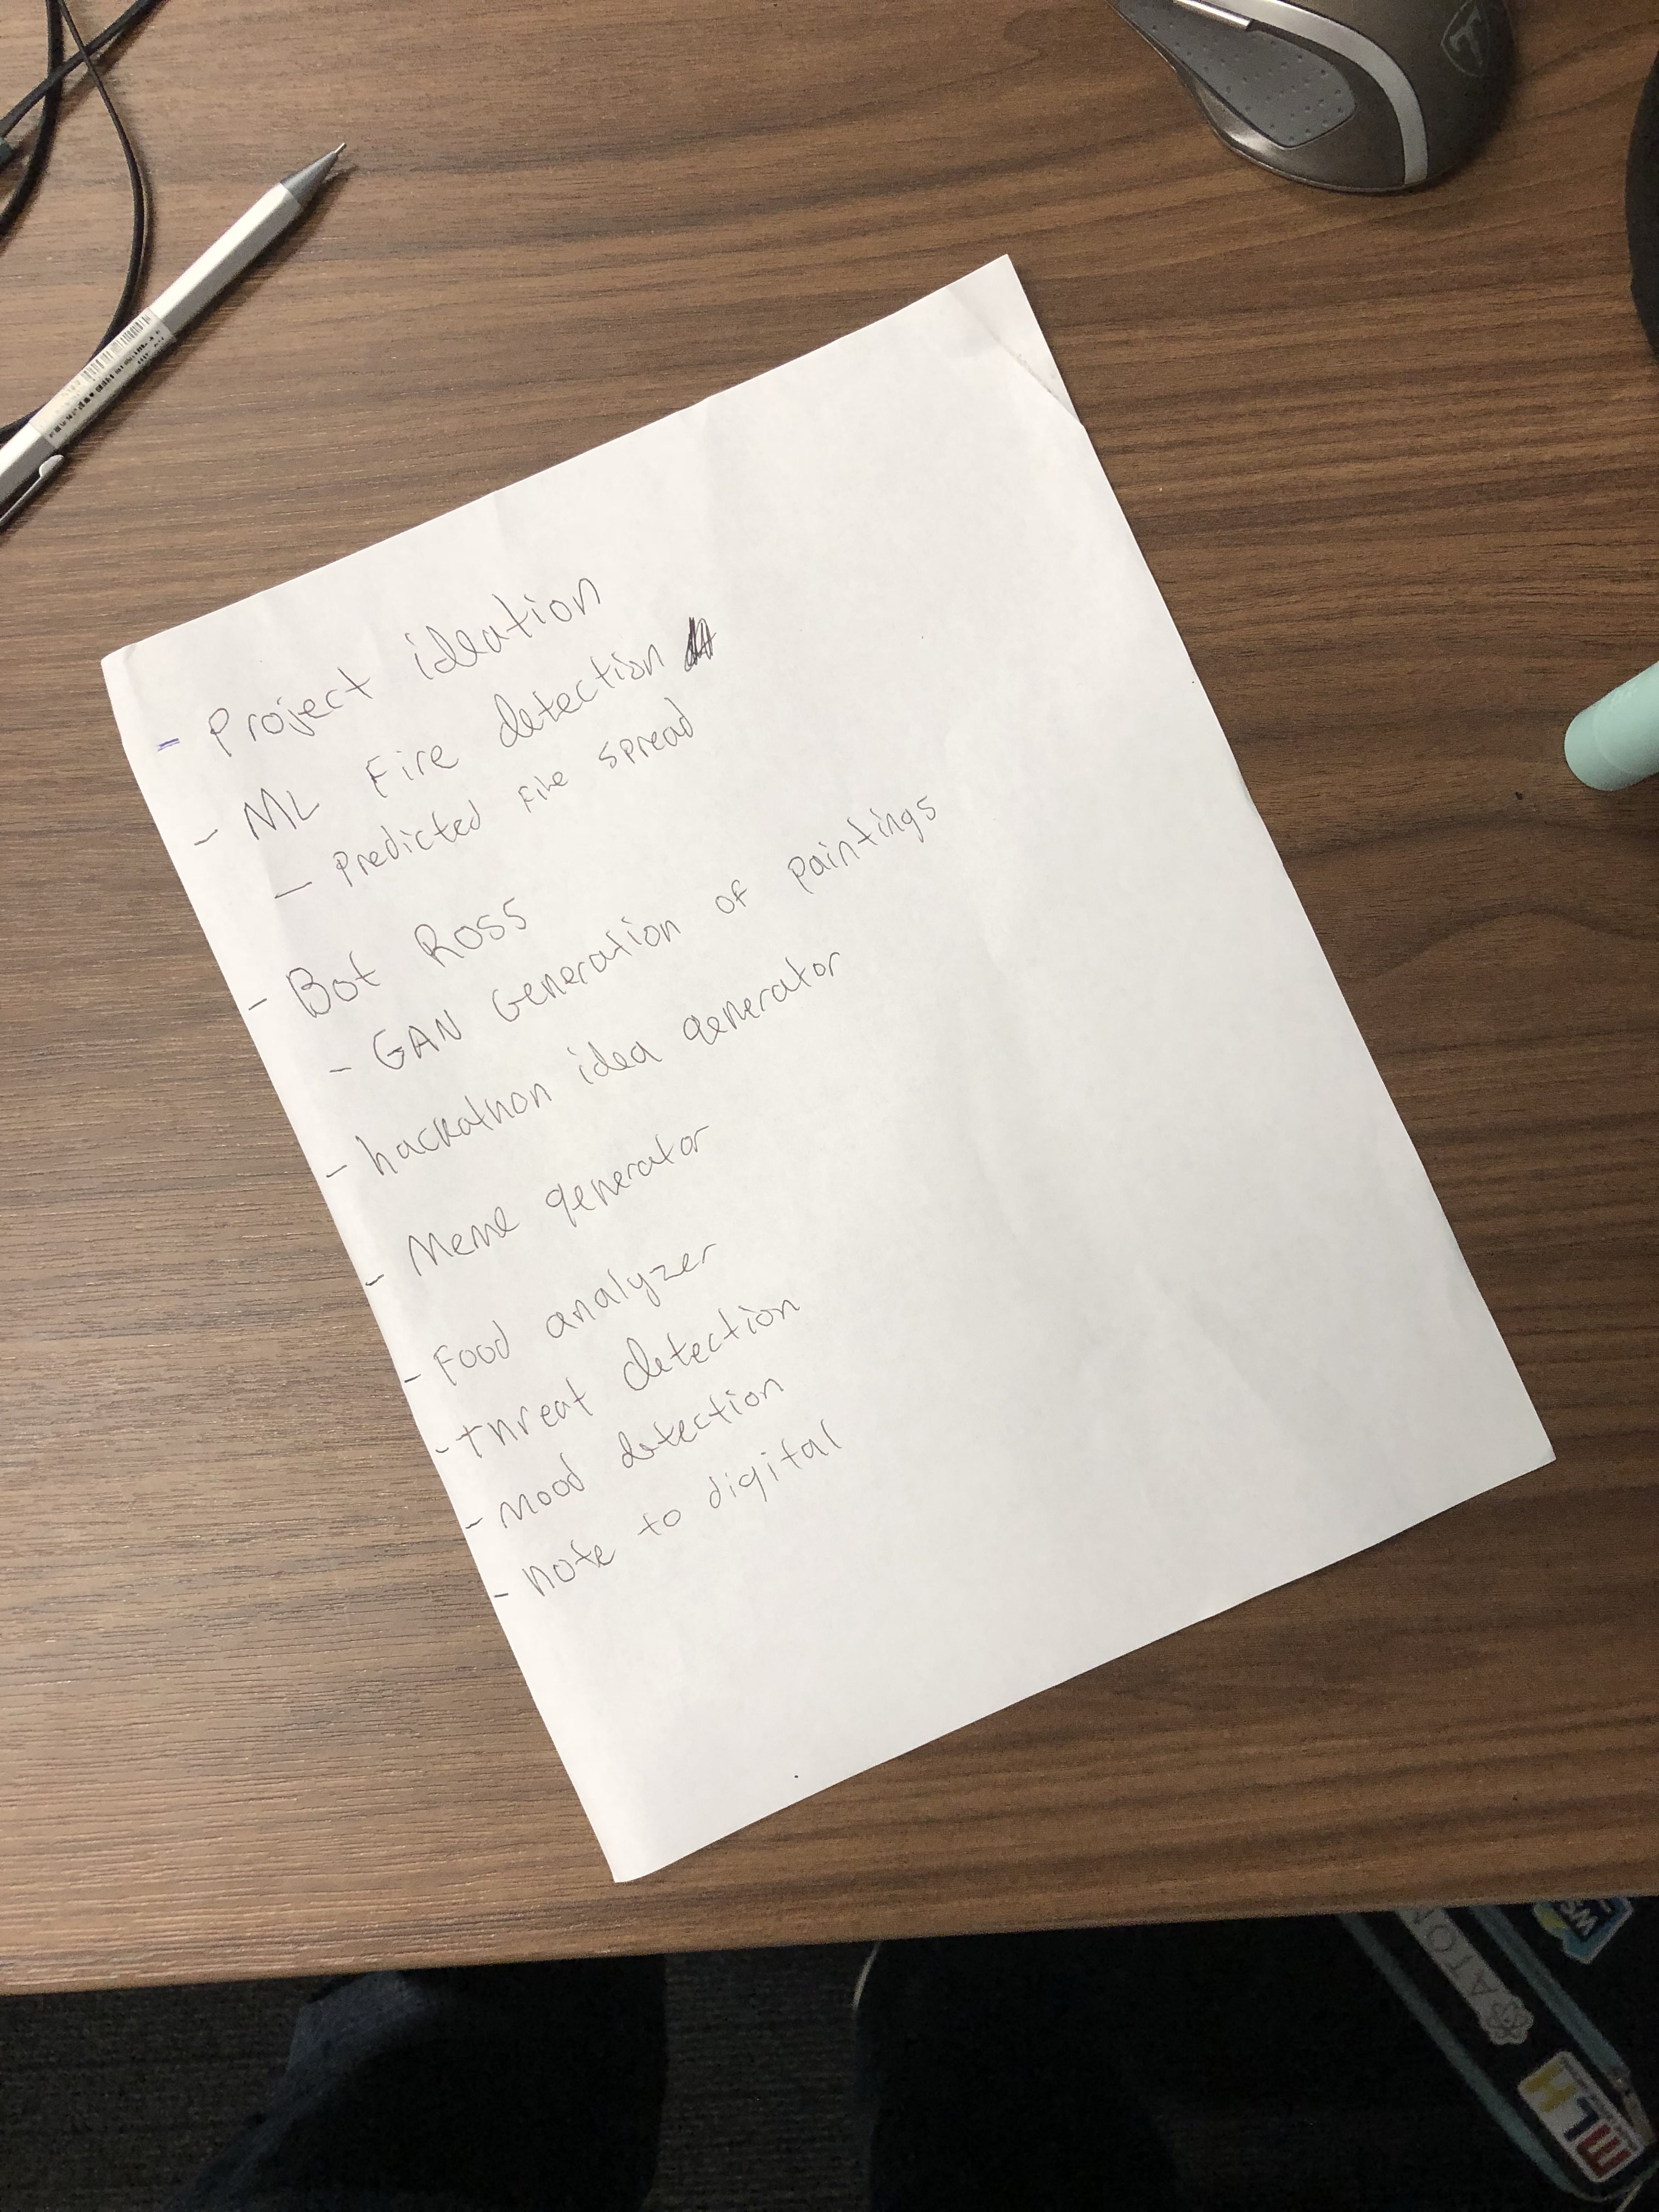 - Project ideation
- ML Fire detection
- Predicted fire spread
- Bot Ross
- GAN Generation of paintings
- hackathon idea generator
- Meme generator
- Food analyzer
- threat detection
- mood detection
- note to digital
ATOM
MLH